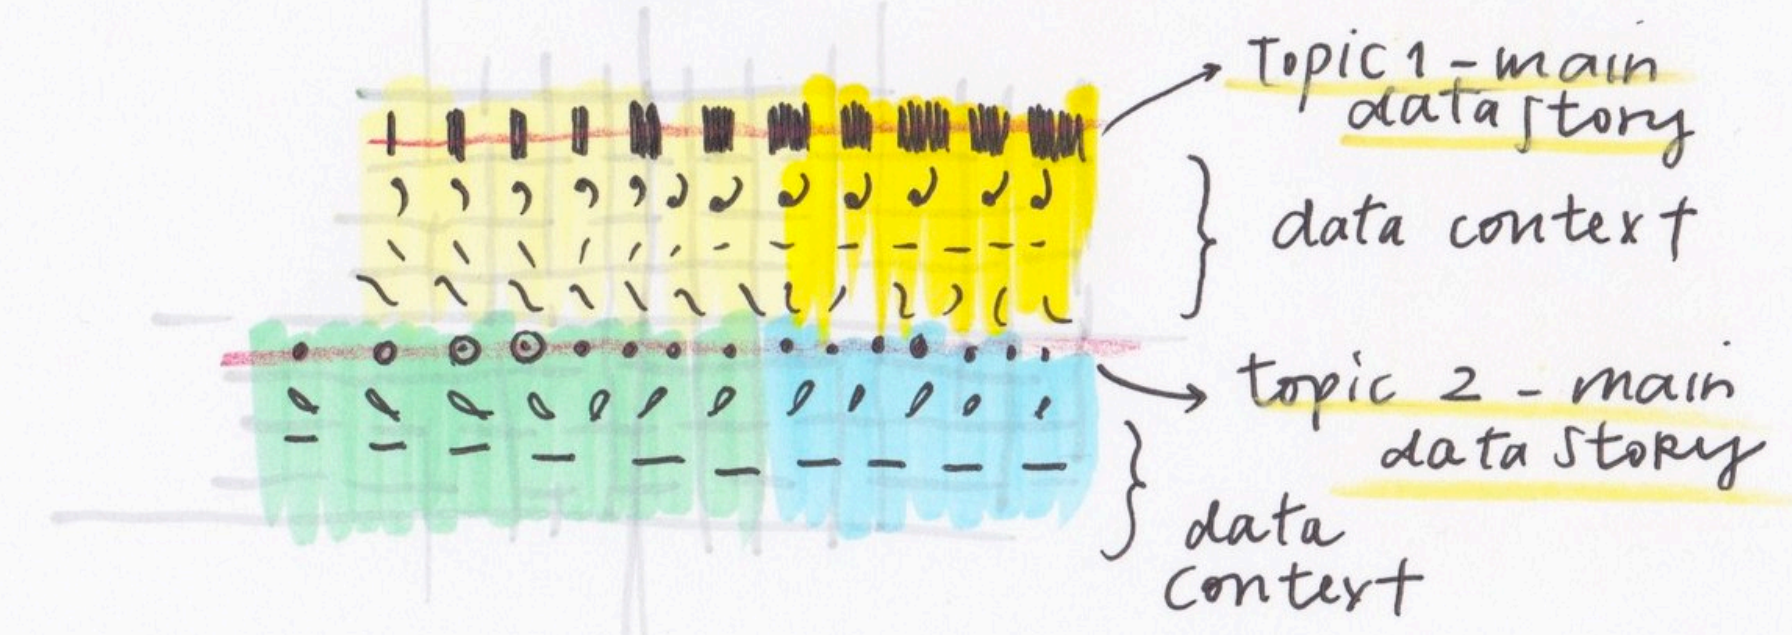 Topic 1 - main
data story
data context
topic 2 - main
data story
data
context